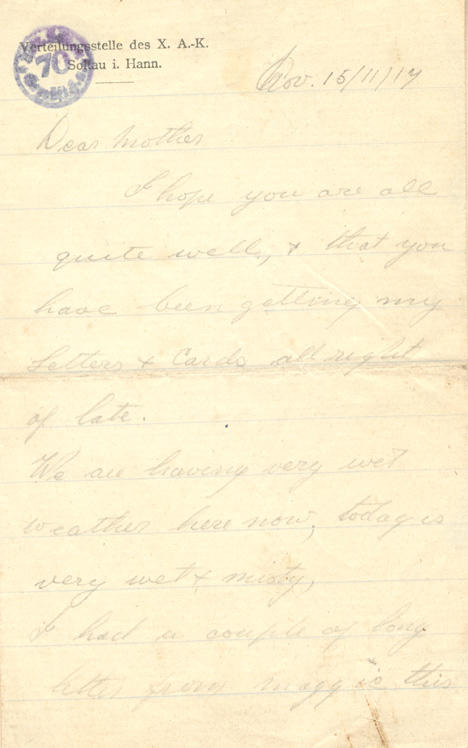 Verteilungsstelle des X. A.-K.
Soltau i. Hann.
70
Nov. 15/11/17
Dear Mother
I hope you are all
quite well, & that you
have been getting my
Letters & Cards all right
of late.
We are having very wet
weather here now, today is
very wet & misty,
I had a couple of long
letter from Maggie this